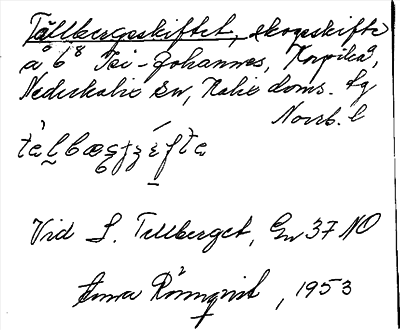 Tällbergsskiftet, skogsskifte
å 6⁸ Isi-Johannes, Korpikå,
Nederkalix sn, Kalix doms. tg
Norrb. l
Vid S. Tellberget, Gn 37 NO
Anna Rönnqvist, 1953